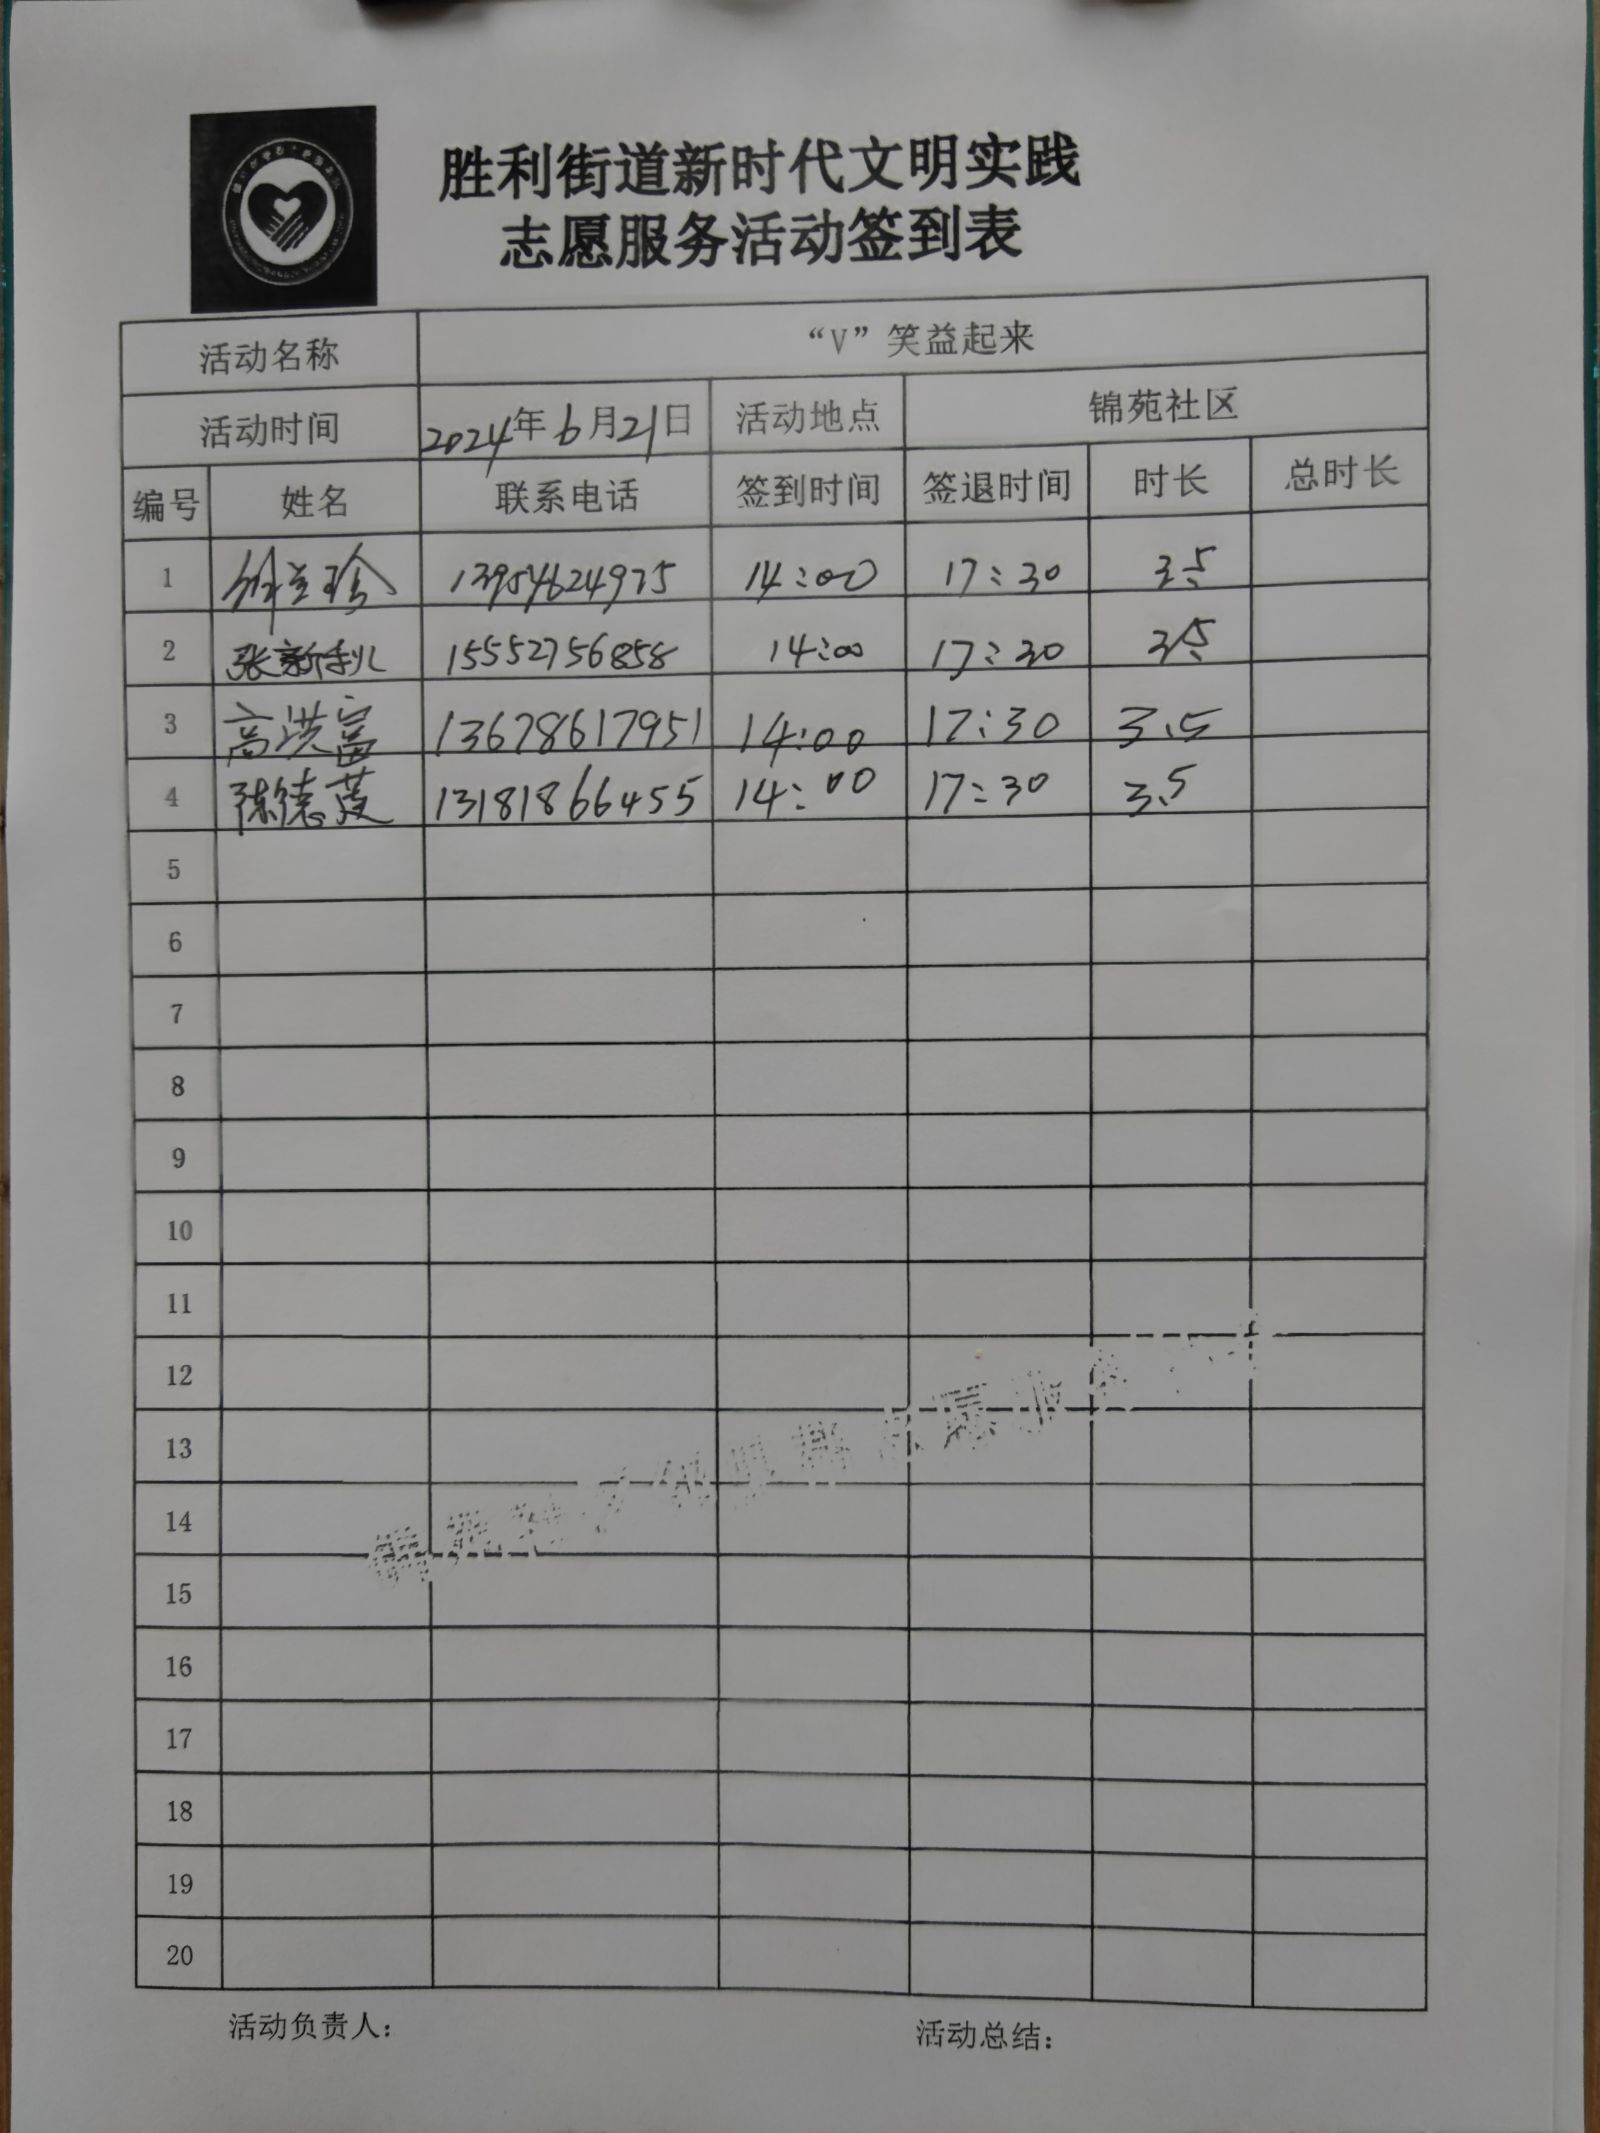 胜利街道新时代文明实践
志愿服务活动签到表
活动名称 “V”笑益起来
活动时间 2024年6月21日 活动地点 锦苑社区
编号 姓名 联系电话 签到时间 签退时间 时长 总时长
1 13954624975 14:00 17:30 3.5
2 张新利 15552756858 14:00 17:30 3.5
3 高洪富 13678617951 14:00 17:30 3.5
4 陈德霞 13181866455 14:00 17:30 3.5
5
6
7
8
9
10
11
12
13
14
15
16
17
18
19
20
活动负责人： 活动总结：